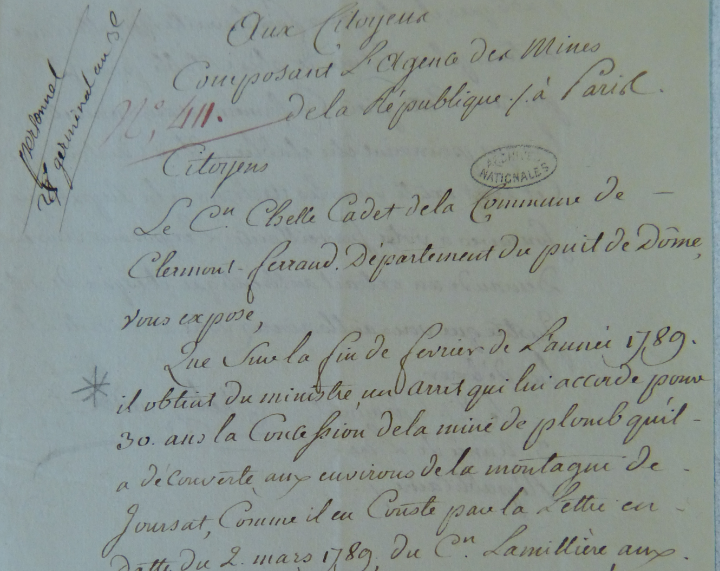 Aux Citoyens
Composant L'Agence des Mines
de la République / à Paris.
personnel
28 germinal an 3e
N°, 411.
Citoyens
ARCHIVES
NATIONALES
Le C.en Chelle Cadet de la Commune de
Clermont-ferrand. Département du puit de Dôme,
vous expose,
Que Sur la fin de fevrier de L'année 1789.
il obtint du ministre un arret qui lui accorde pour
30. ans la Concession de la mine de plomb qu'il
a découverte aux environs de la montagne de
Joursat, Comme il en Conste par la Lettre en
datte du 2. mars 1789, du C.en Lamillière aux